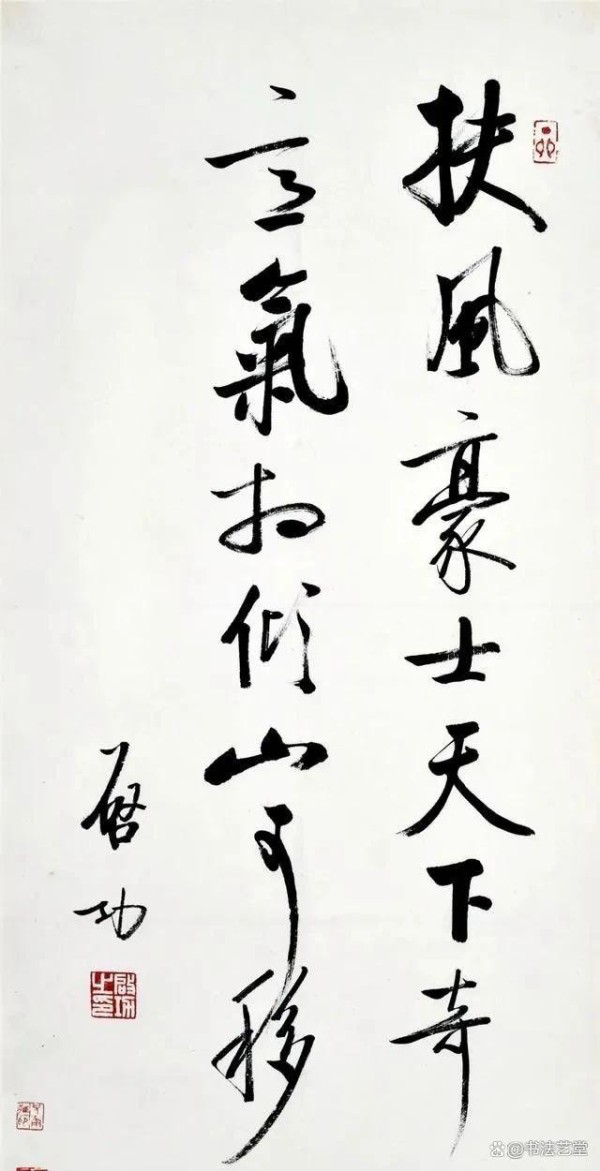 扶風豪士天下奇
意氣相傾山可移
啓功
啟功之印
@书法艺堂